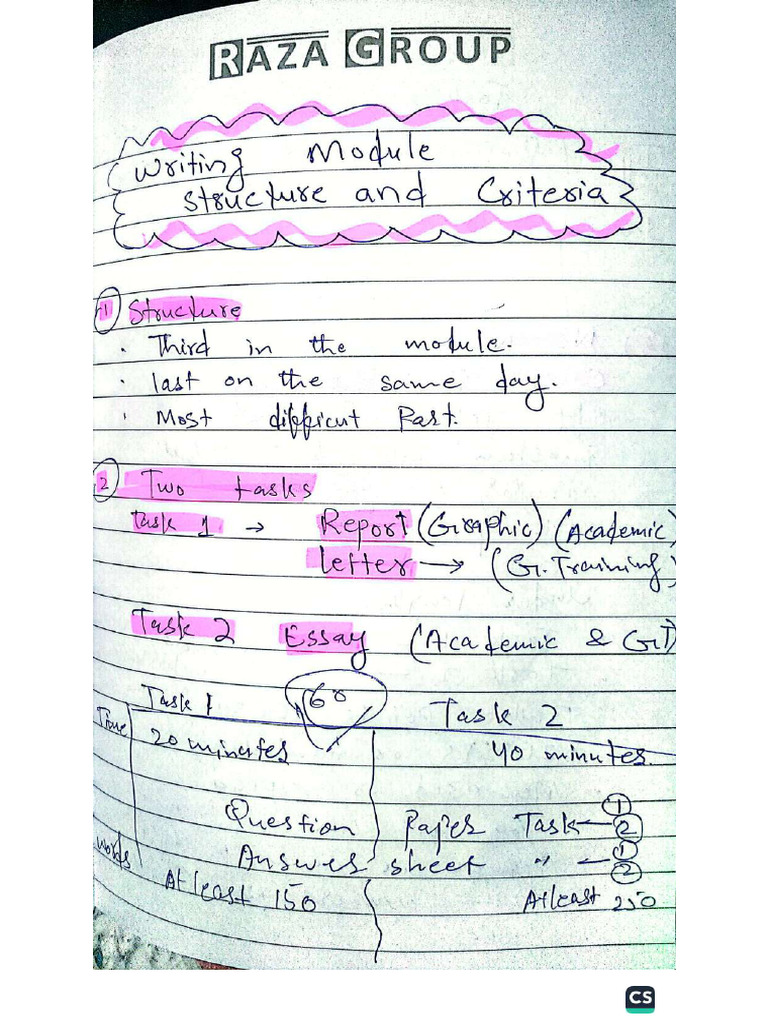 RAZA GROUP
Writing Module
Structure and Criteria
1 Structure
· Third in the module.
· last on the same day.
· Most difficut Part.
2 Two tasks
Task 1 → Report (Graphic) (Academic)
letter → (G.Training)
Task 2 Essay (Academic & GT)
Task 1 60 Task 2
Time 20 minutes 40 minutes
Question Paper Task 1
2
Answer sheet " 1
2
words At least 150 At least 250
CS